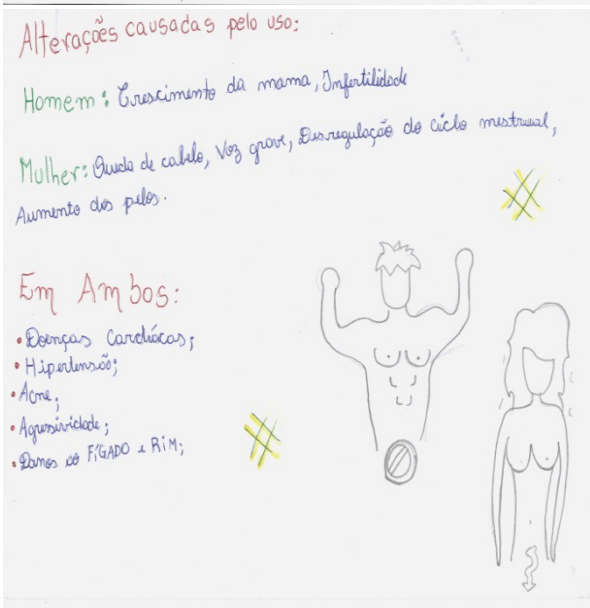 Alterações causadas pelo uso:
Homem: Crescimento da mama, Infertilidade
Mulher: Queda de cabelo, Voz grave, Desregulação do ciclo mestrual,
Aumento dos pelos.
Em Ambos:
• Doenças Cardíacas;
• Hipertensão;
• Acne;
• Agressividade;
• Danos ao FÍGADO e RiM;